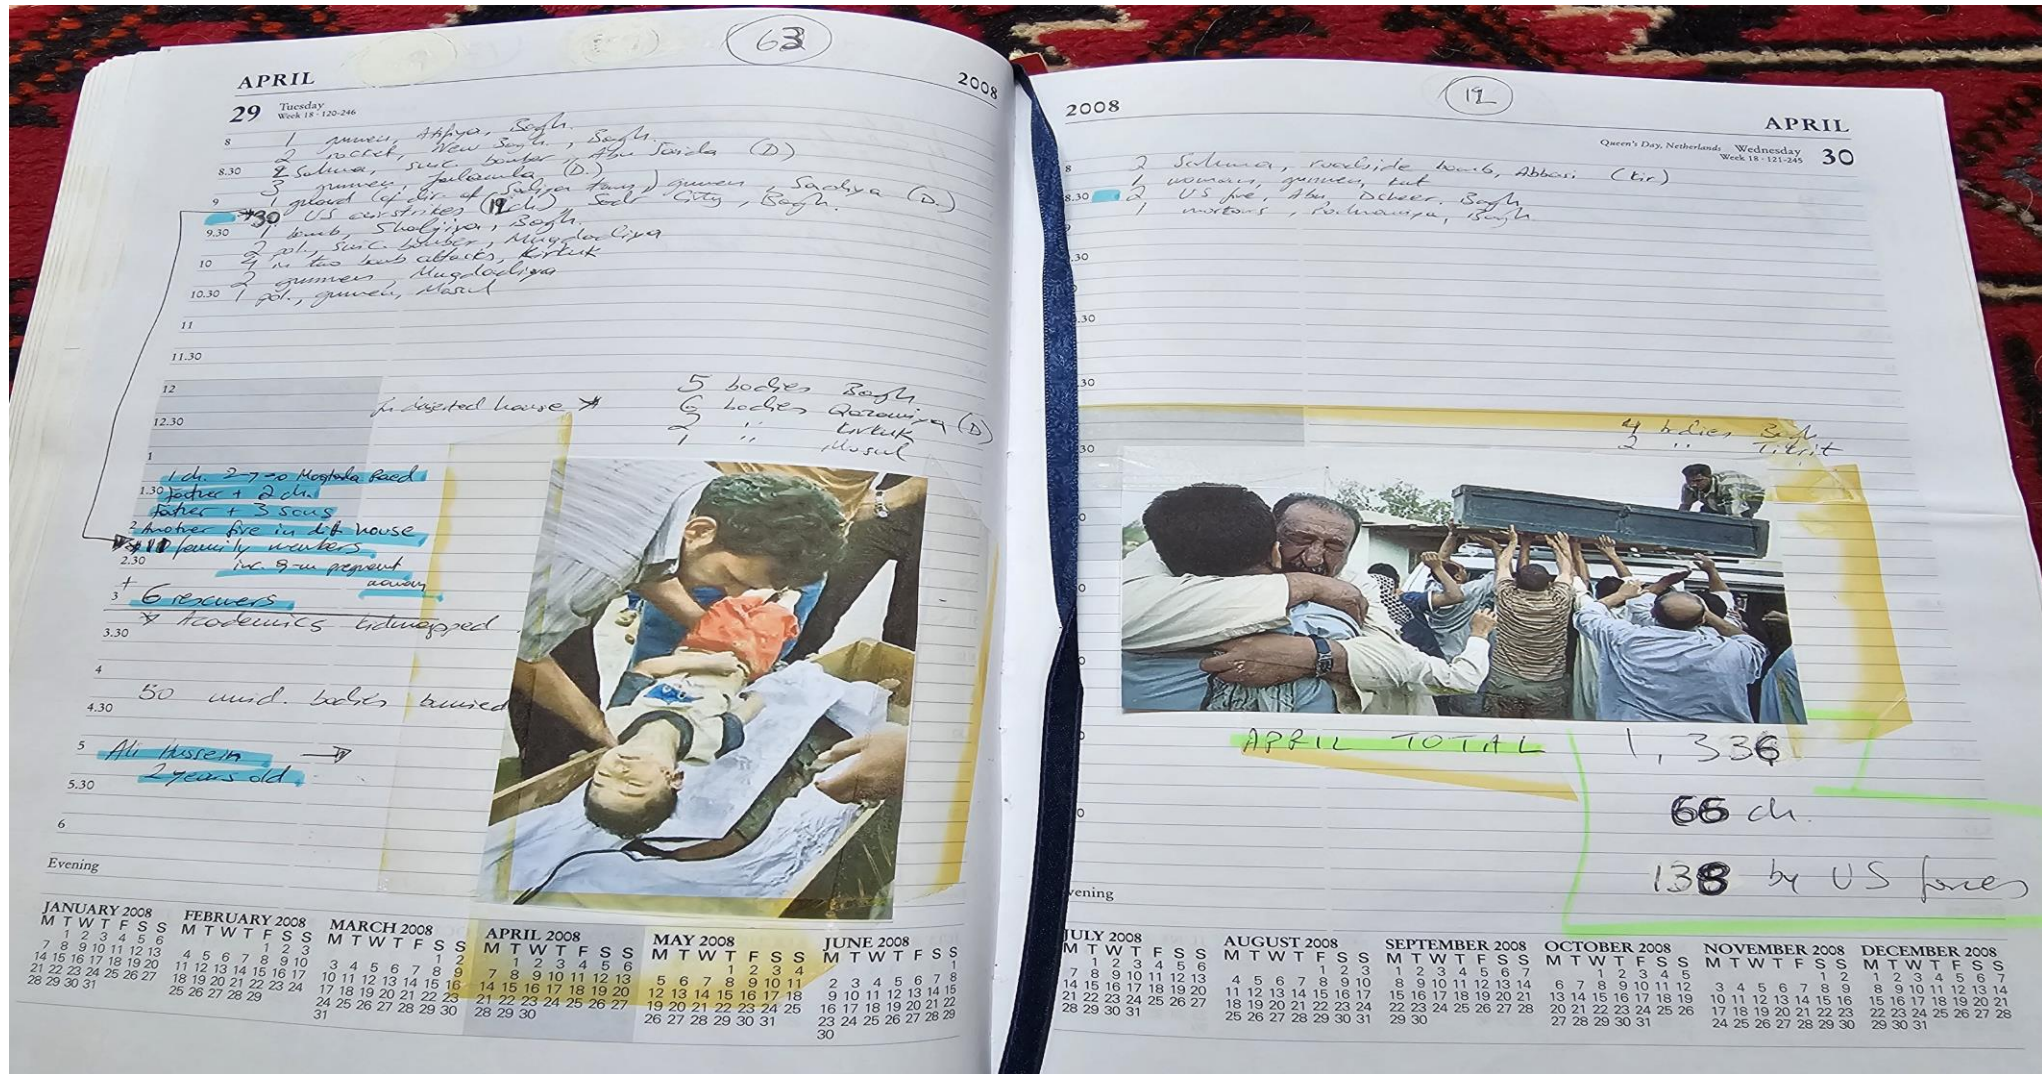 63
APRIL
2008
29 Tuesday
Week 18 · 120-246
8 1 gunmen, Atifiya, Bagh.
2 rocket, New Bagh., Bagh.
8.30 2 Sahwa, suic. bomber, Abu Saida (D)
3 gunmen, Jalawla (D.)
9 1 guard (of dir. of Sadiya town), gunmen, Sadiya (D.)
30 US airstrikes (12 ch) Sadr City, Bagh.
9.30 1 bomb, Bagh.
2 pol., suic. bomber, Muqdadiya
10 4 in two bomb attacks, Kirkuk
2 gunmen, Muqdadiya
10.30 1 pol., gunmen, Mosul
11
11.30
12
5 bodies Bagh
In deserted house 6 bodies (D)
12.30
2 " Kirkuk
1 " Mosul
1
1 ch. 2-y-o Raed
1.30 Father + 2 ch.
Father + 3 sons
2 Another five in diff house
11 family members
2.30 inc. 9-m pregnant
woman
+
3 6 rescuers
* Academics kidnapped
3.30
4
50 unid. bodies buried
4.30
5 Ali Hussein →
2 years old
5.30
6
Evening
JANUARY 2008
M T W T F S S
1 2 3 4 5 6
7 8 9 10 11 12 13
14 15 16 17 18 19 20
21 22 23 24 25 26 27
28 29 30 31
FEBRUARY 2008
M T W T F S S
1 2 3
4 5 6 7 8 9 10
11 12 13 14 15 16 17
18 19 20 21 22 23 24
25 26 27 28 29
MARCH 2008
M T W T F S S
1 2
3 4 5 6 7 8 9
10 11 12 13 14 15 16
17 18 19 20 21 22 23
24 25 26 27 28 29 30
31
APRIL 2008
M T W T F S S
1 2 3 4 5 6
7 8 9 10 11 12 13
14 15 16 17 18 19 20
21 22 23 24 25 26 27
28 29 30
MAY 2008
M T W T F S S
1 2 3 4
5 6 7 8 9 10 11
12 13 14 15 16 17 18
19 20 21 22 23 24 25
26 27 28 29 30 31
JUNE 2008
M T W T F S S
1
2 3 4 5 6 7 8
9 10 11 12 13 14 15
16 17 18 19 20 21 22
23 24 25 26 27 28 29
30
12
2008
APRIL
Queen's Day, Netherlands Wednesday 30
Week 18 · 121-245
8 2 Sahwa, roadside bomb, Abbasi (Kir)
1 woman, gunmen, Kut
8.30 2 US fire, Abu Dsheer, Bagh
1 mortars, Bagh
.30
.30
.30
4 bodies Bagh
30 2 " Tikrit
APRIL TOTAL 1,336
66 ch.
138 by US forces
vening
JULY 2008
M T W T F S S
1 2 3 4 5 6
7 8 9 10 11 12 13
14 15 16 17 18 19 20
21 22 23 24 25 26 27
28 29 30 31
AUGUST 2008
M T W T F S S
1 2 3
4 5 6 7 8 9 10
11 12 13 14 15 16 17
18 19 20 21 22 23 24
25 26 27 28 29 30 31
SEPTEMBER 2008
M T W T F S S
1 2 3 4 5 6 7
8 9 10 11 12 13 14
15 16 17 18 19 20 21
22 23 24 25 26 27 28
29 30
OCTOBER 2008
M T W T F S S
1 2 3 4 5
6 7 8 9 10 11 12
13 14 15 16 17 18 19
20 21 22 23 24 25 26
27 28 29 30 31
NOVEMBER 2008
M T W T F S S
1 2
3 4 5 6 7 8 9
10 11 12 13 14 15 16
17 18 19 20 21 22 23
24 25 26 27 28 29 30
DECEMBER 2008
M T W T F S S
1 2 3 4 5 6 7
8 9 10 11 12 13 14
15 16 17 18 19 20 21
22 23 24 25 26 27 28
29 30 31